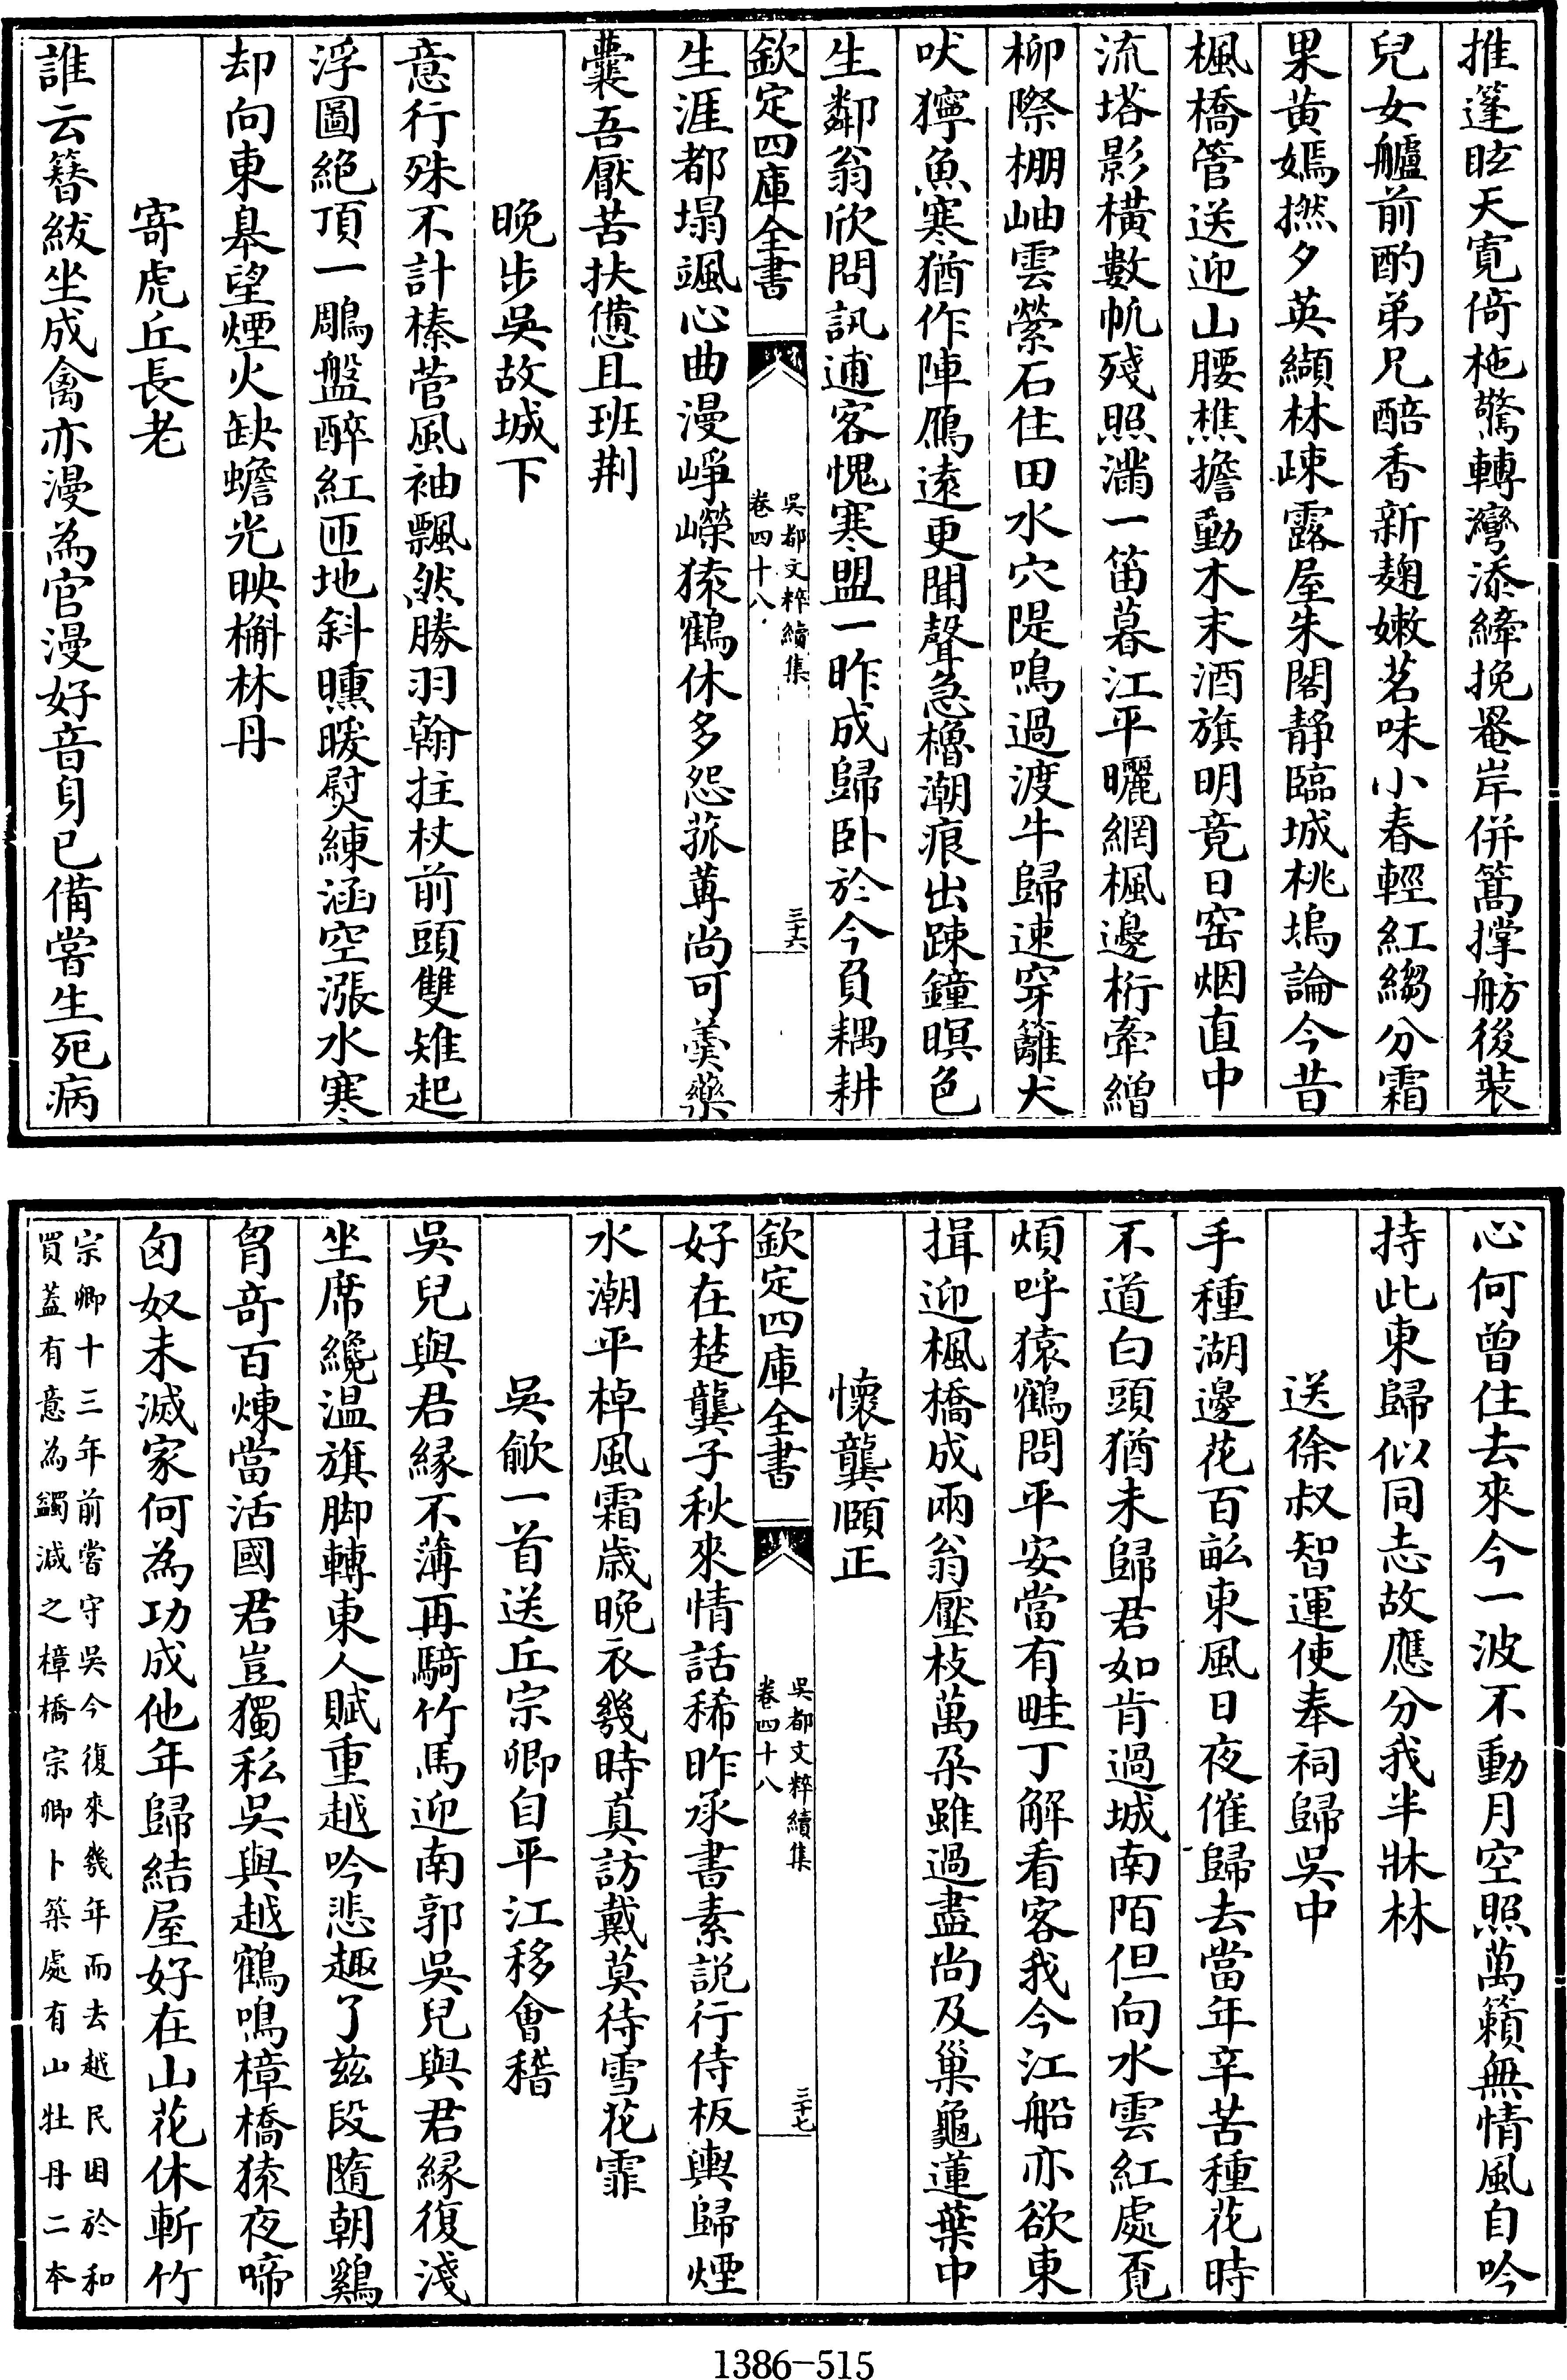 推篷眩天寛倚柂驚轉灣添縴挽罨岸併篙撑舫後裝
兒女艫前酌弟兄醅香新麹嫩茗味小春輕紅縐分霜
果黄嫣撚夕英纈林疎露屋朱閣静臨城桃塢論今昔
楓橋管送迎山腰樵擔動木末酒旗明竟日窑烟直中
流塔影横數帆殘照滿一笛暮江平曬網楓邊桁牽繒
柳際棚岫雲縈石住田水穴隄鳴過渡牛歸速穿籬犬
吠獰魚寒猶作陣鴈遠更聞聲急櫓潮痕出踈鐘暝色
生鄰翁欣問訊逋客愧寒盟一昨成歸卧於今負耦耕
欽定四庫全書
吳都文粹續集
卷四十八
三十六
生涯都塌颯心曲漫崢嶸猿鶴休多怨菰蓴尚可羮藥
囊吾厭苦扶憊且班荆
晚步吳故城下
意行殊不計榛菅風袖飄然勝羽翰拄杖前頭雙雉起
浮圖絶頂一鵰盤醉紅匝地斜曛暖熨練涵空漲水寒
却向東臯望煙火缺蟾光映槲林丹
寄虎丘長老
誰云簪紱坐成禽亦漫為官漫好音身已備嘗生死病
心何曾住去來今一波不動月空照萬籟無情風自吟
持此東歸似同志故應分我半牀林
送徐叔智運使奉祠歸吳中
手種湖邊花百畝東風日夜催歸去當年辛苦種花時
不道白頭猶未歸君如肯過城南陌但向水雲紅處覔
煩呼猿鶴問平安當有畦丁解看客我今江船亦欲東
揖迎楓橋成兩翁壓枝萬朶雖過盡尚及巢龜蓮葉中
懷龔頤正
欽定四庫全書
吳都文粹續集
卷四十八
三十七
好在楚龔子秋來情話稀昨承書素説行侍板輿歸煙
水潮平棹風霜歲晚衣幾時真訪戴莫待雪花霏
吳歈一首送丘宗卿自平江移會稽
吳兒與君縁不薄再騎竹馬迎南郭吳兒與君縁復淺
坐席纔温旗脚轉東人賦重越吟悲趣了兹段隨朝鷄
胷竒百煉當活國君豈獨私吳與越鶴鳴樟橋猿夜啼
匈奴未滅家何為功成他年歸結屋好在山花休斬竹
宗卿十三年前嘗守吳今復來幾年而去越民困於和
買蓋有意為蠲減之樟橋宗卿卜築處有山牡丹二本
1386-515